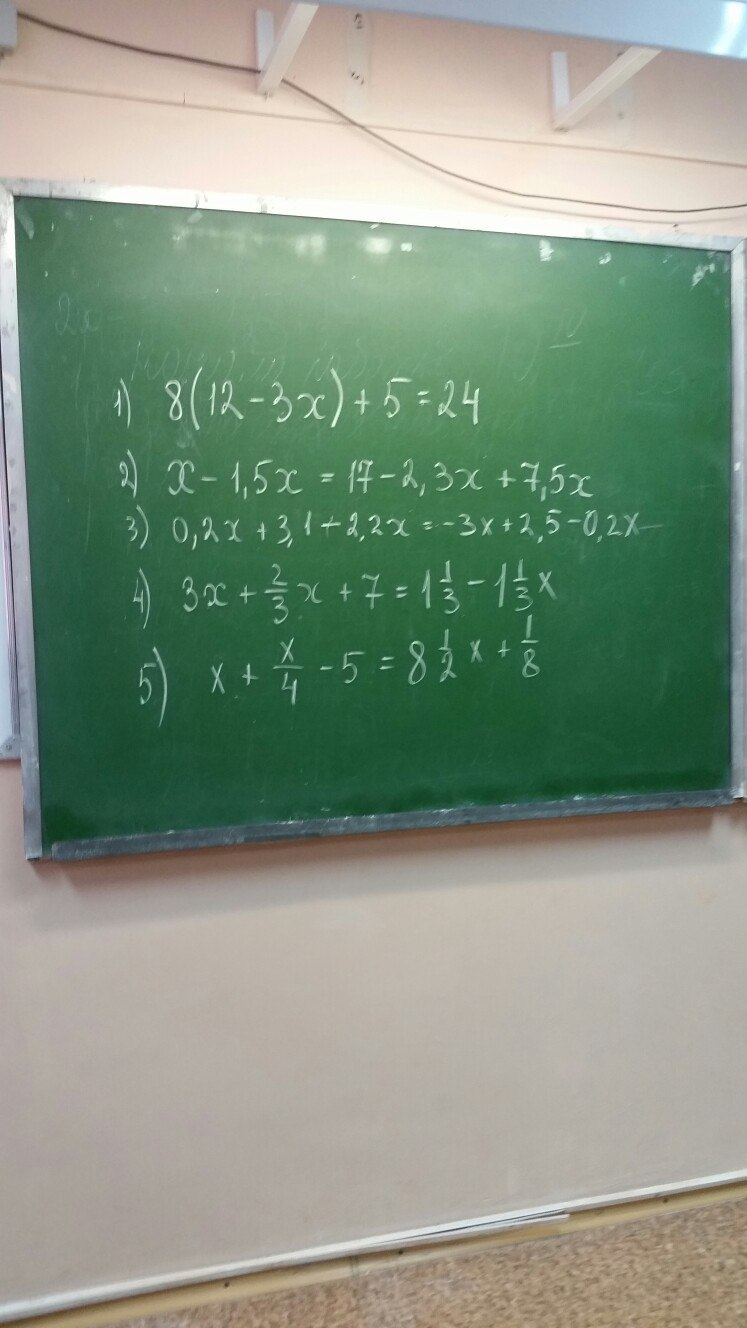 1) 8(12-3x)+5=24
2) x-1,5x=17-2,3x+7,5x
3) 0,2x+3,1+2,2x=-3x+2,5-0,2x
4) 3x+2/3x+7=1 1/3-1 1/3x
5) x+x/4-5=8 1/2x+1/8